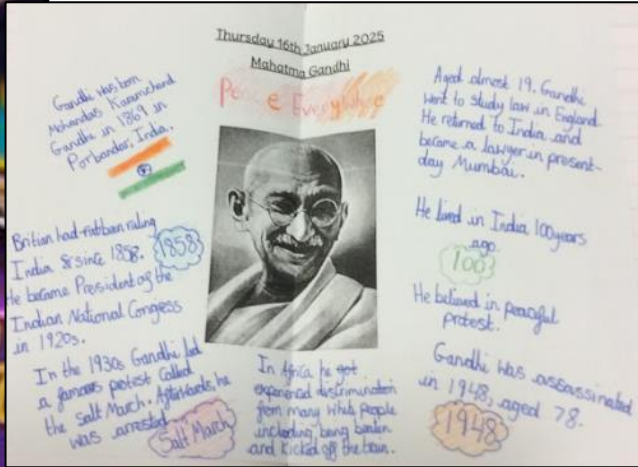 Thursday 16th January 2025
Mahatma Gandhi
Peace Everywhere
Gandhi was born
Mohandas Karamchand
Gandhi in 1869 in
Porbandar, India.
Britian had ruling
India & since 1858.
1858
He became President of the
Indian National Congress
in 1920s.
In the 1930s Gandhi led
a famous protest called
the Salt March. Afterwards, he
was arrested
Salt March
In Africa he got
experienced discrimination
from many white people
including being beaten
and kicked off the train.
Aged almost 19, Gandhi
went to study law in England.
He returned to India and
became a lawyer in present-
day Mumbai.
He lived in India 100 years
ago.
100
He believed in peaceful
protest.
Gandhi was assassinated
in 1948, aged 78.
1948